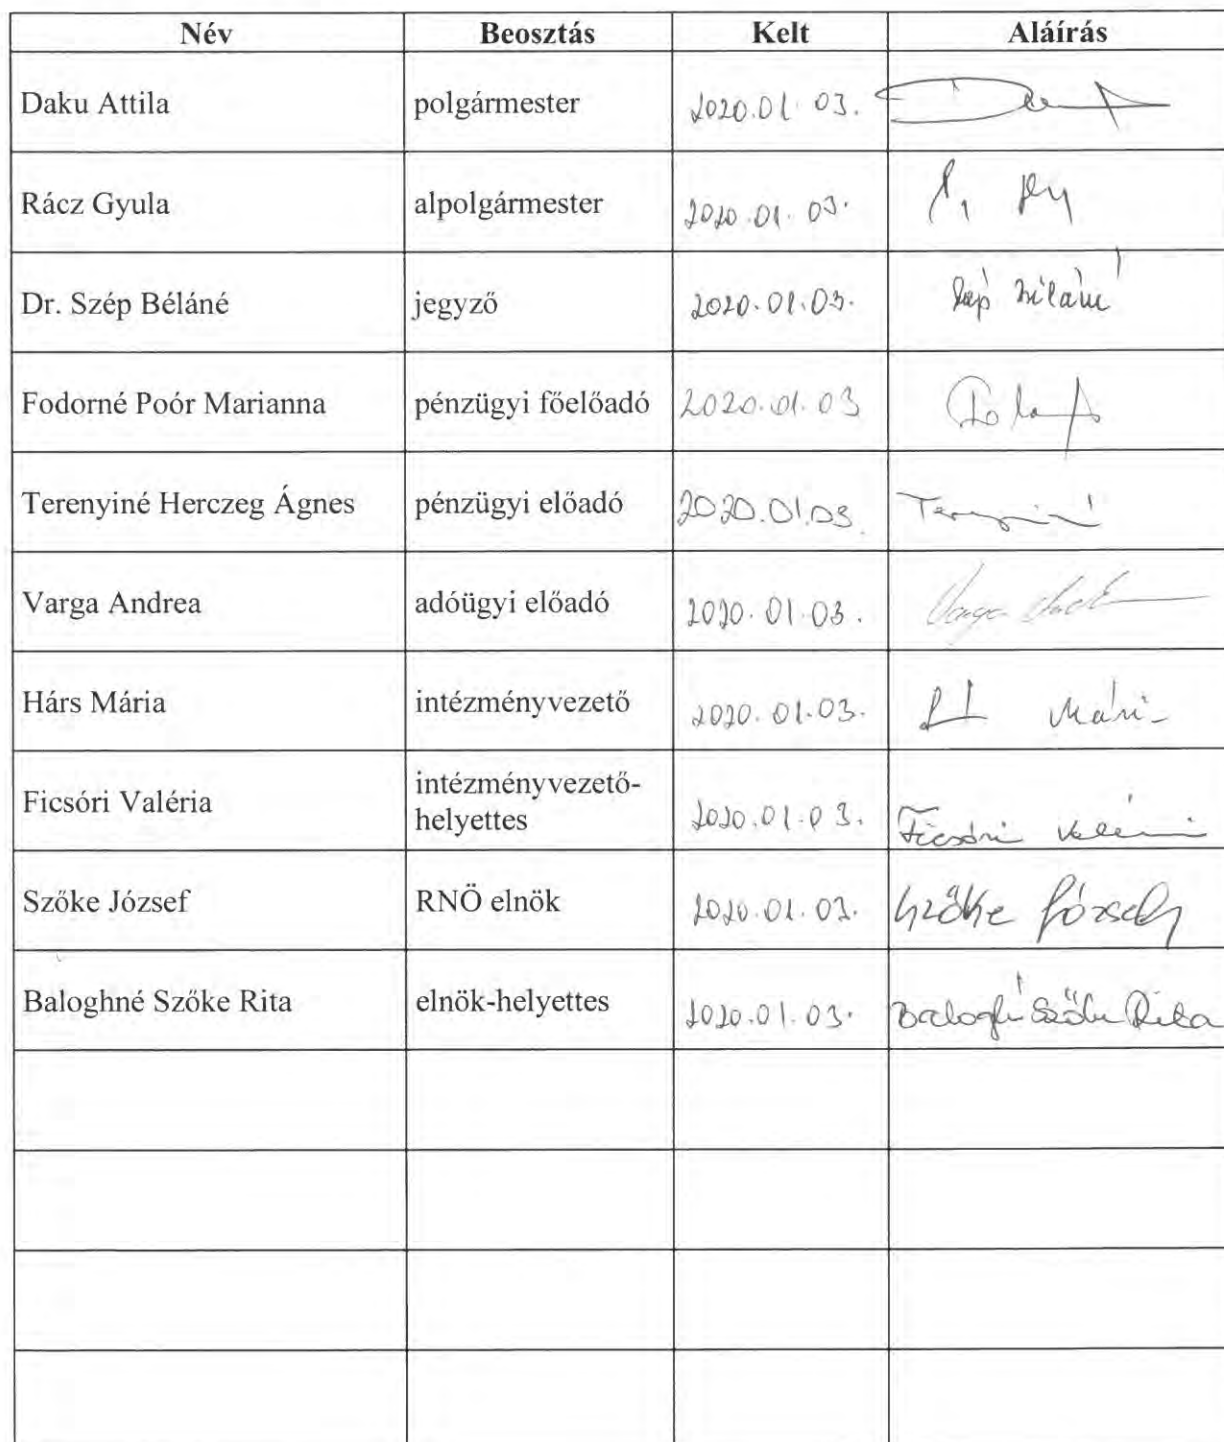 Név Beosztás Kelt Aláírás
Daku Attila polgármester 2020.01.03.
Rácz Gyula alpolgármester 2020.01.03.
Dr. Szép Béláné jegyző 2020.01.03.
Fodorné Poór Marianna pénzügyi főelőadó 2020.01.03
Terenyiné Herczeg Ágnes pénzügyi előadó 2020.01.03 Terenyiné
Varga Andrea adóügyi előadó 2020.01.03. Varga
Hárs Mária intézményvezető 2020.01.03.
intézményvezető-
Ficsóri Valéria 2020.01.03. Ficsóri Valéria
helyettes
Szőke József RNÖ elnök 2020.01.03. Szőke József
Baloghné Szőke Rita elnök-helyettes 2020.01.03. Baloghné Szőke Rita